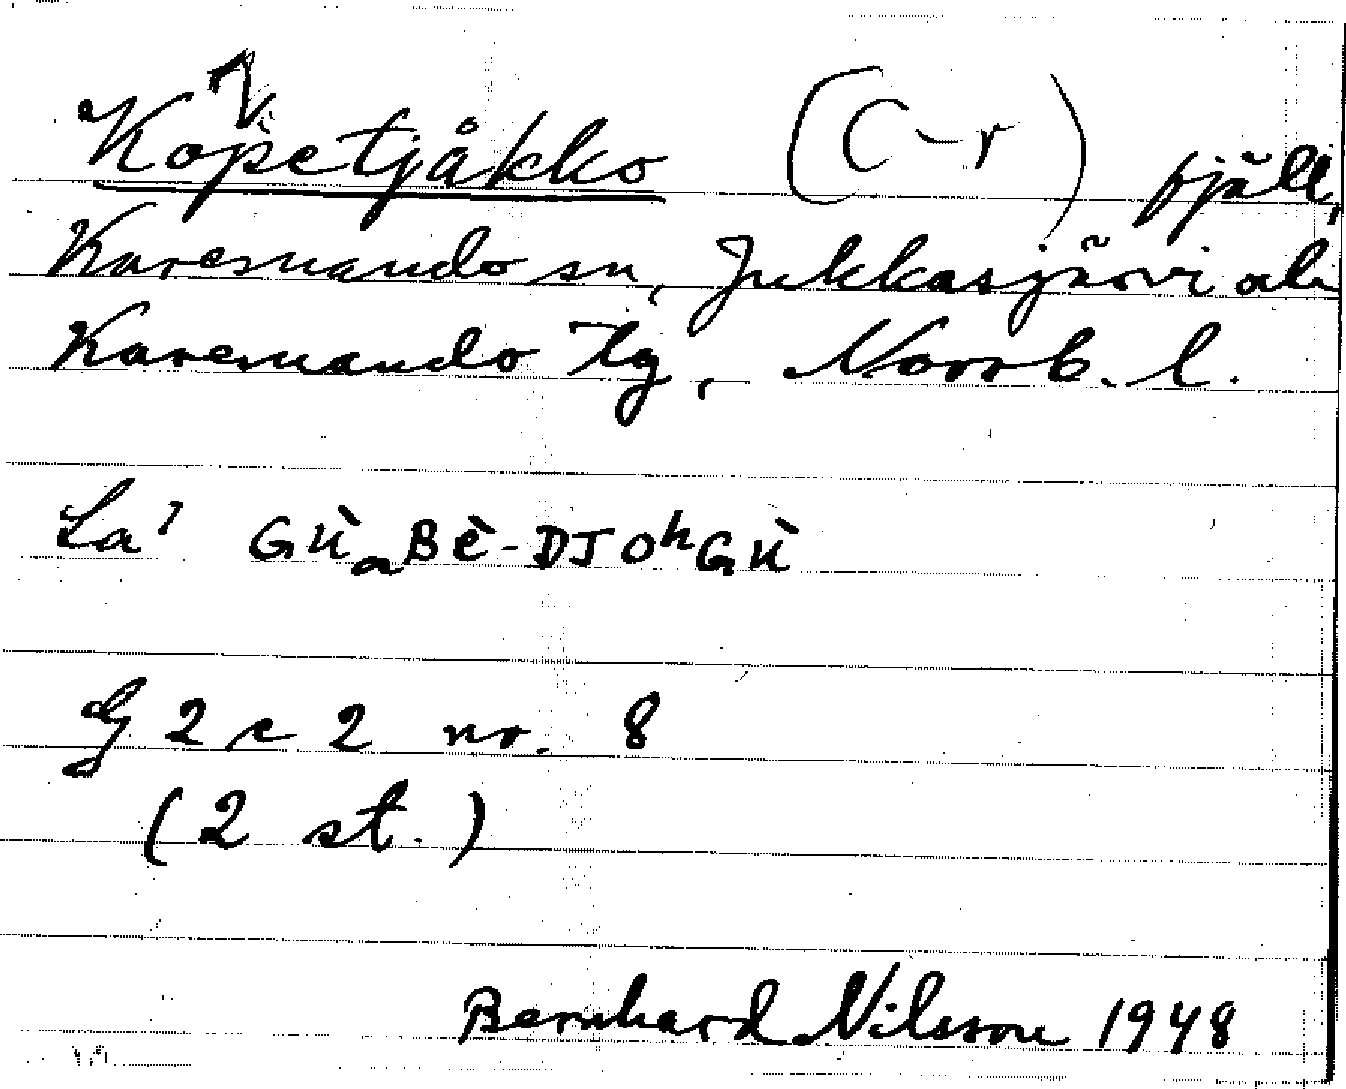 Kopetjåkko (C-r) fjäll,
Karesuando sn, Jukkasjärvi och
Karesuando tg, Norrb. l.
La' GÙaBÈ-DJOhGÙ
G 2 c 2 nr. 8
(2 st.)
Bernhard Nilsson 1948